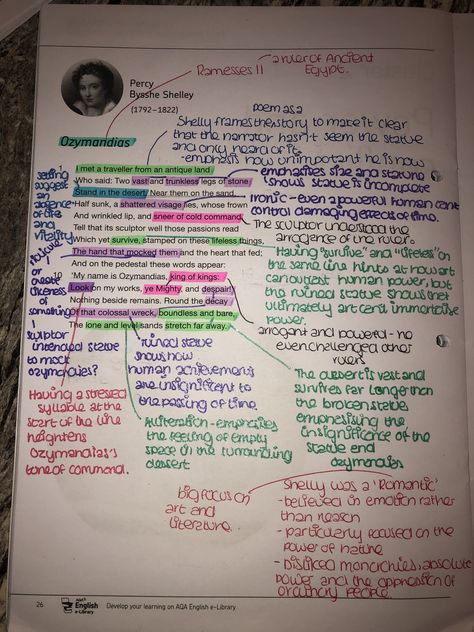 a ruler of Ancient
Egypt.
Ramesses II
Percy
Bysshe Shelley
(1792–1822)
poem as a
Shelly frames the story to make it clear
that the narrator hasn't seem the statue
and only heard of it.
- emphasis how unimportant he is now
Ozymandias
I met a traveller from an antique land
Who said: Two vast and trunkless legs of stone
Stand in the desert. Near them on the sand,
Half sunk, a shattered visage lies, whose frown
And wrinkled lip, and sneer of cold command,
Tell that its sculptor well those passions read
Which yet survive, stamped on these lifeless things,
The hand that mocked them and the heart that fed;
And on the pedestal these words appear:
10
'My name is Ozymandias, king of kings:
Look on my works, ye Mighty, and despair!
Nothing beside remains. Round the decay
Of that colossal wreck, boundless and bare,
The lone and level sands stretch far away.
setting
suggest
an
absence
of life
and
vitality
emphasises size and stature
shows statue is incomplete
Ironic - even a powerful human cant
control damaging effects of time.
The sculptor understood the
arrogence of the ruler.
Having "survive" and "lifeless" on
the same line hints at how art
can outlast human power, but
the ruined statue shows that
ultimately art cent immortalise
power.
or
create
likeness of
something
sculptor
intended statue
to mock
ozymandias?
arrogant and powerful - he
even challenged other
rulers
ruined statue
shows how
human achievements
are insignificant to
the passing of time.
The desert is vast and
survives far longer than
the broken statue
emphasising the
insignificance of the
statue and
ozymandias
Having a stressed
syllable at the
start of the line
heightens
Ozymandias's
tone of command.
Alliteration - emphasies
the feeling of empty
space in the surrounding
dessert
big focus on
art and
literature
Shelly was a 'Romantic'
- believed in emotion rather
than reason
- particularly focused on the
power of nature
- Disliked monarchies, absolute
power and the oppression of
ordinary people.
26
AQA
English
e-Library
Develop your learning on AQA English e-Library